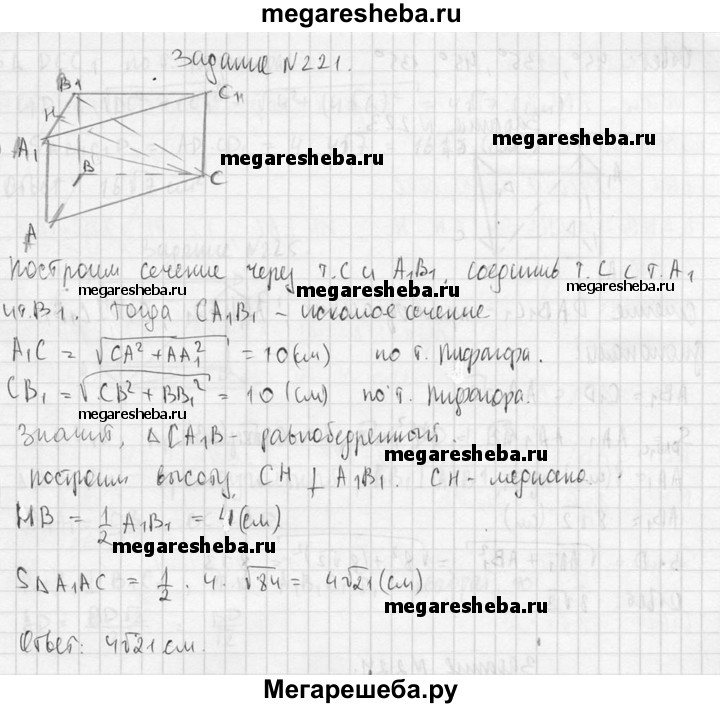 megaresheba.ru
Задание №221.
B1
C1
H
A1
B
C
A
megaresheba.ru
megaresheba.ru
Построим сечение через т. C и A1B1, соединив т. C с т. A1
megaresheba.ru
megaresheba.ru
megaresheba.ru
и т. B1. Тогда CA1B1 – искомое сечение
A1C = √CA² + AA1² = 10 (см) по т. Пифагора.
CB1 = √CB² + BB1² = 10 (см) по т. Пифагора.
megaresheba.ru
Значит, △CA1B – равнобедренный.
megaresheba.ru
Построим высоту CH ⊥ A1B1. CH – медиана.
HB = 1/2 A1B1 = 4 (см)
megaresheba.ru
S△A1AC = 1/2 · 4 · √84 = 4√21 (см)
megaresheba.ru
Ответ: 4√21 см.
Мегарешеба.ру